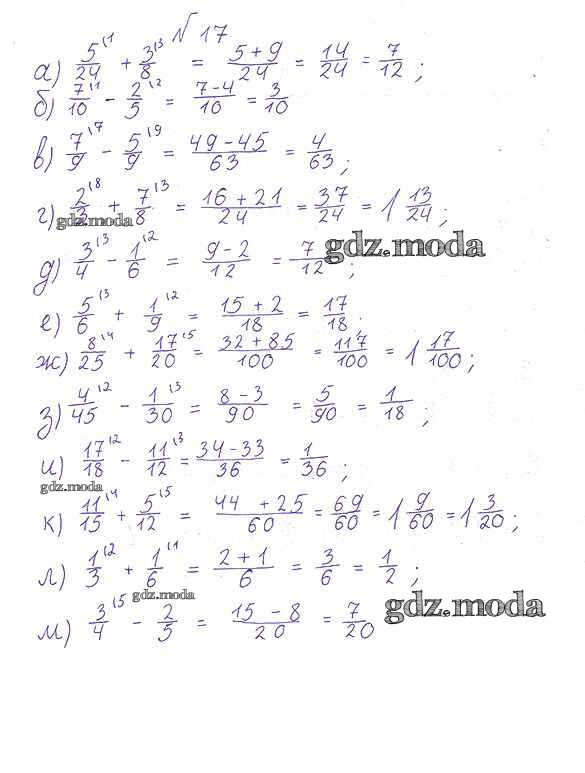 № 17
а) 5/24 + 3/8 = (5+9)/24 = 14/24 = 7/12 ;
б) 7/10 - 2/5 = (7-4)/10 = 3/10
в) 7/9 - 5/9 = (49-45)/63 = 4/63 ;
г) 2/3 + 7/8 = (16+21)/24 = 37/24 = 1 13/24 ;
gdz.moda
gdz.moda
д) 3/4 - 1/6 = (9-2)/12 = 7/12 ;
е) 5/6 + 1/9 = (15+2)/18 = 17/18
ж) 8/25 + 17/20 = (32+85)/100 = 117/100 = 1 17/100 ;
з) 4/45 - 1/30 = (8-3)/90 = 5/90 = 1/18 ;
и) 17/18 - 11/12 = (34-33)/36 = 1/36 ;
gdz.moda
к) 11/15 + 5/12 = (44 + 25)/60 = 69/60 = 1 9/60 = 1 3/20 ;
л) 1/3 + 1/6 = (2+1)/6 = 3/6 = 1/2 ;
gdz.moda
gdz.moda
м) 3/4 - 2/5 = (15-8)/20 = 7/20